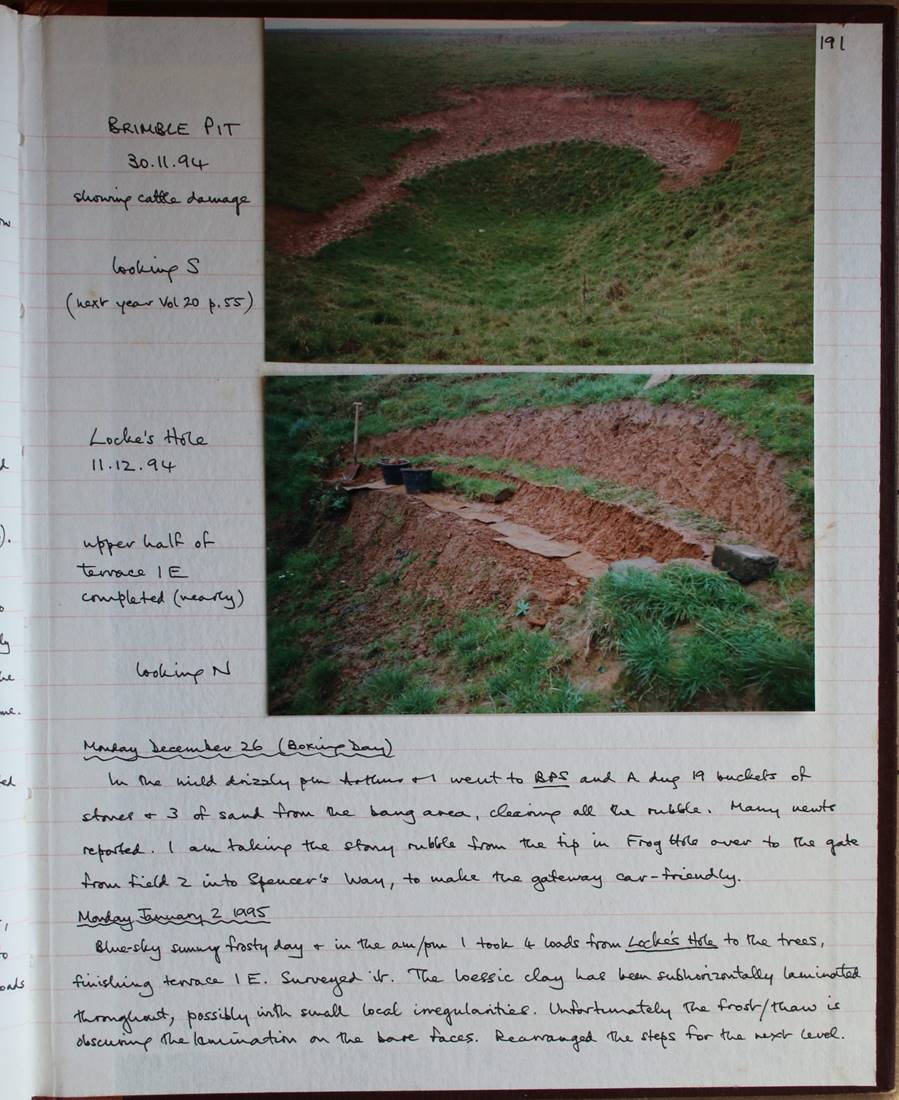 191
BRIMBLE PIT
30.11.94
showing cattle damage
looking S
(next year Vol 20 p.55)
Locke's Hole
11.12.94
upper half of
terrace 1E
completed (nearly)
looking N
Monday December 26 (Boxing Day)
In the mild drizzly pm Arthur + I went to BPS and A dug 19 buckets of
stones + 3 of sand from the bang area, clearing all the rubble. Many newts
reported. I am taking the stony rubble from the tip in Frog Hole over to the gate
from field 2 into Spencer's Way, to make the gateway car-friendly.
Monday January 2 1995
Blue-sky sunny frosty day + in the am/pm I took 4 loads from Locke's Hole to the trees,
finishing terrace 1E. Surveyed it. The loessic clay has been subhorizontally laminated
throughout, possibly with small local irregularities. Unfortunately the frost/thaw is
obscuring the lamination on the bare faces. Rearranged the steps for the next level.